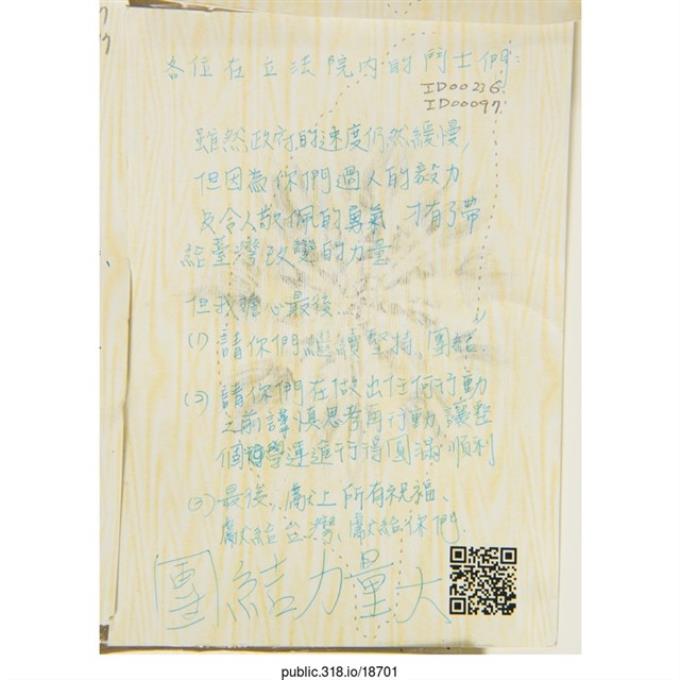 各位在立法院內的鬥士們:
ID00236
ID00097
雖然政府的速度仍然緩慢,
但因為你們過人的毅力
及令人敬佩的勇氣 才有了帶
給臺灣改變的力量
但我擔心最後...
(1) 請你們繼續堅持、團結
(2) 請你們在做出任何行動
之前謹慎思考再行動,讓整
個學運進行得圓滿順利
(3) 最後..獻上所有祝福、
獻給台灣、獻給你們.
團結力量大
public.318.io/18701